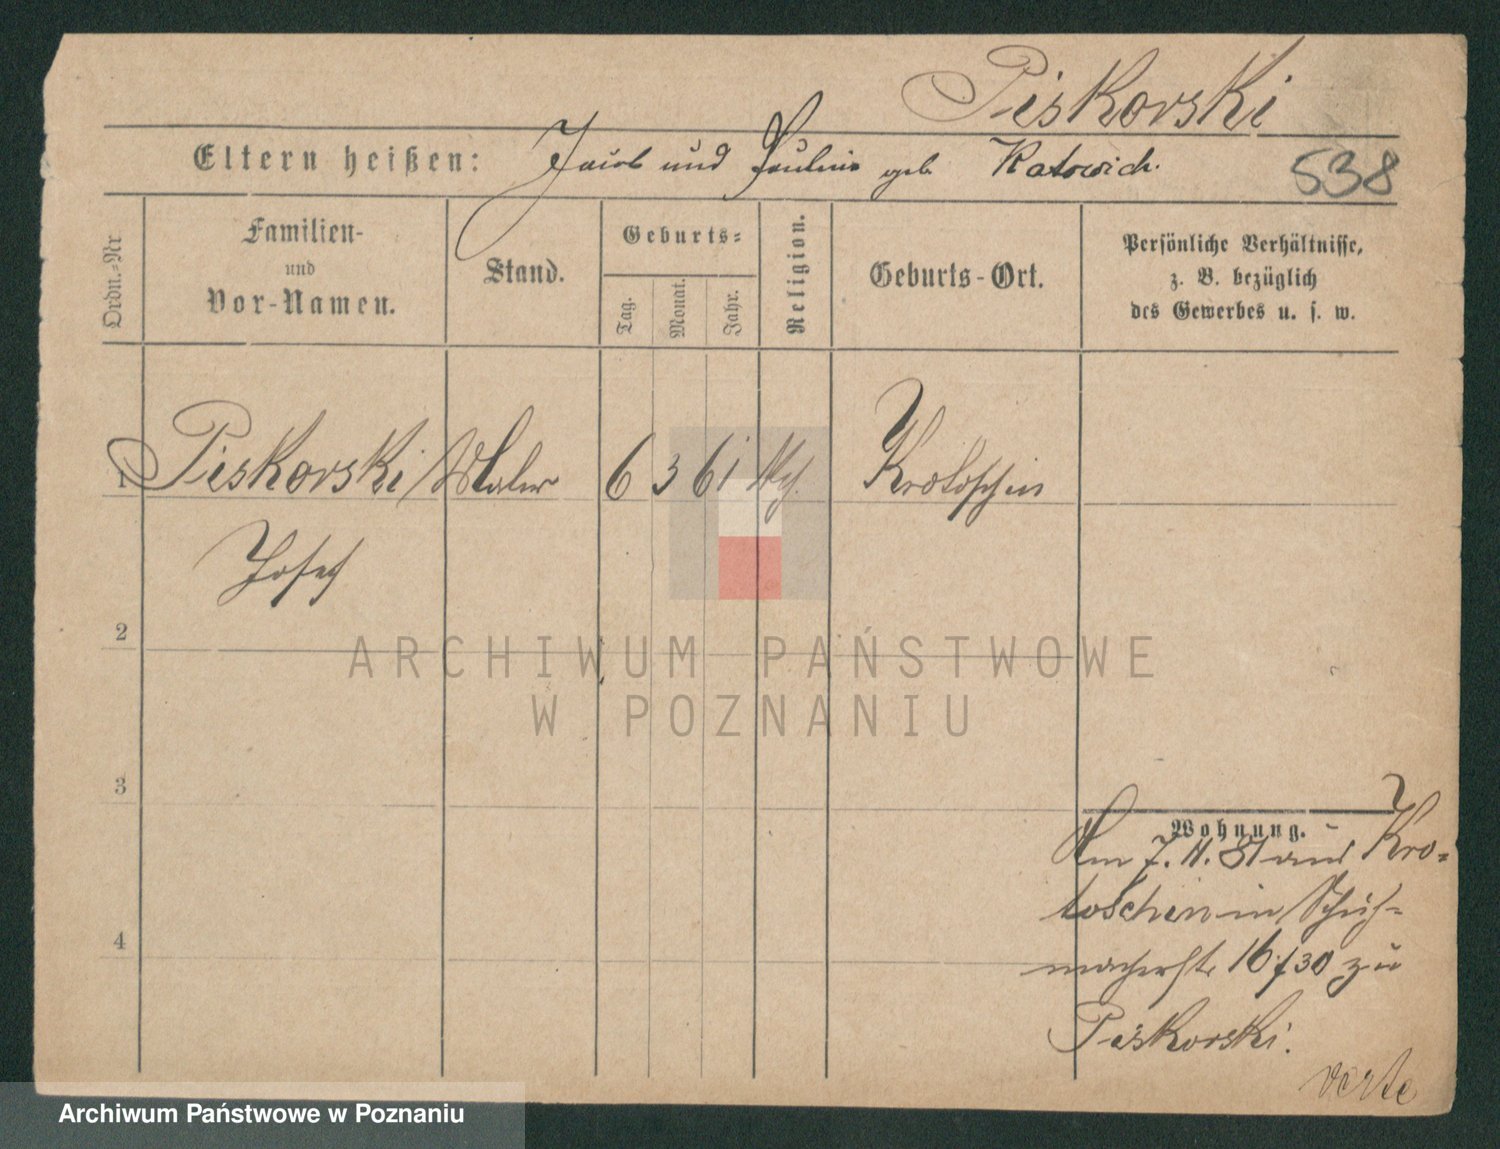 Piskorski
Eltern heißen: Jacob und Paulina geb. Katowich.
538
Ordn.-Nr
Familien-
und
Vor-Namen.
Stand.
Geburts-
Tag.
Monat.
Jahr.
Religion.
Geburts-Ort.
Persönliche Verhältnisse,
z. B. bezüglich
des Gewerbes u. s. w.
1 Piskorski Maler 6 3 61 Krotoschin
Josef
2
ARCHIWUM PAŃSTWOWE
W POZNANIU
3
Wohnung.
Am 7. 11. 81 aus Kro-
toschin in Schuh-
macherstr. 16/30 zu
Piskorski.
4
verte
Archiwum Państwowe w Poznaniu